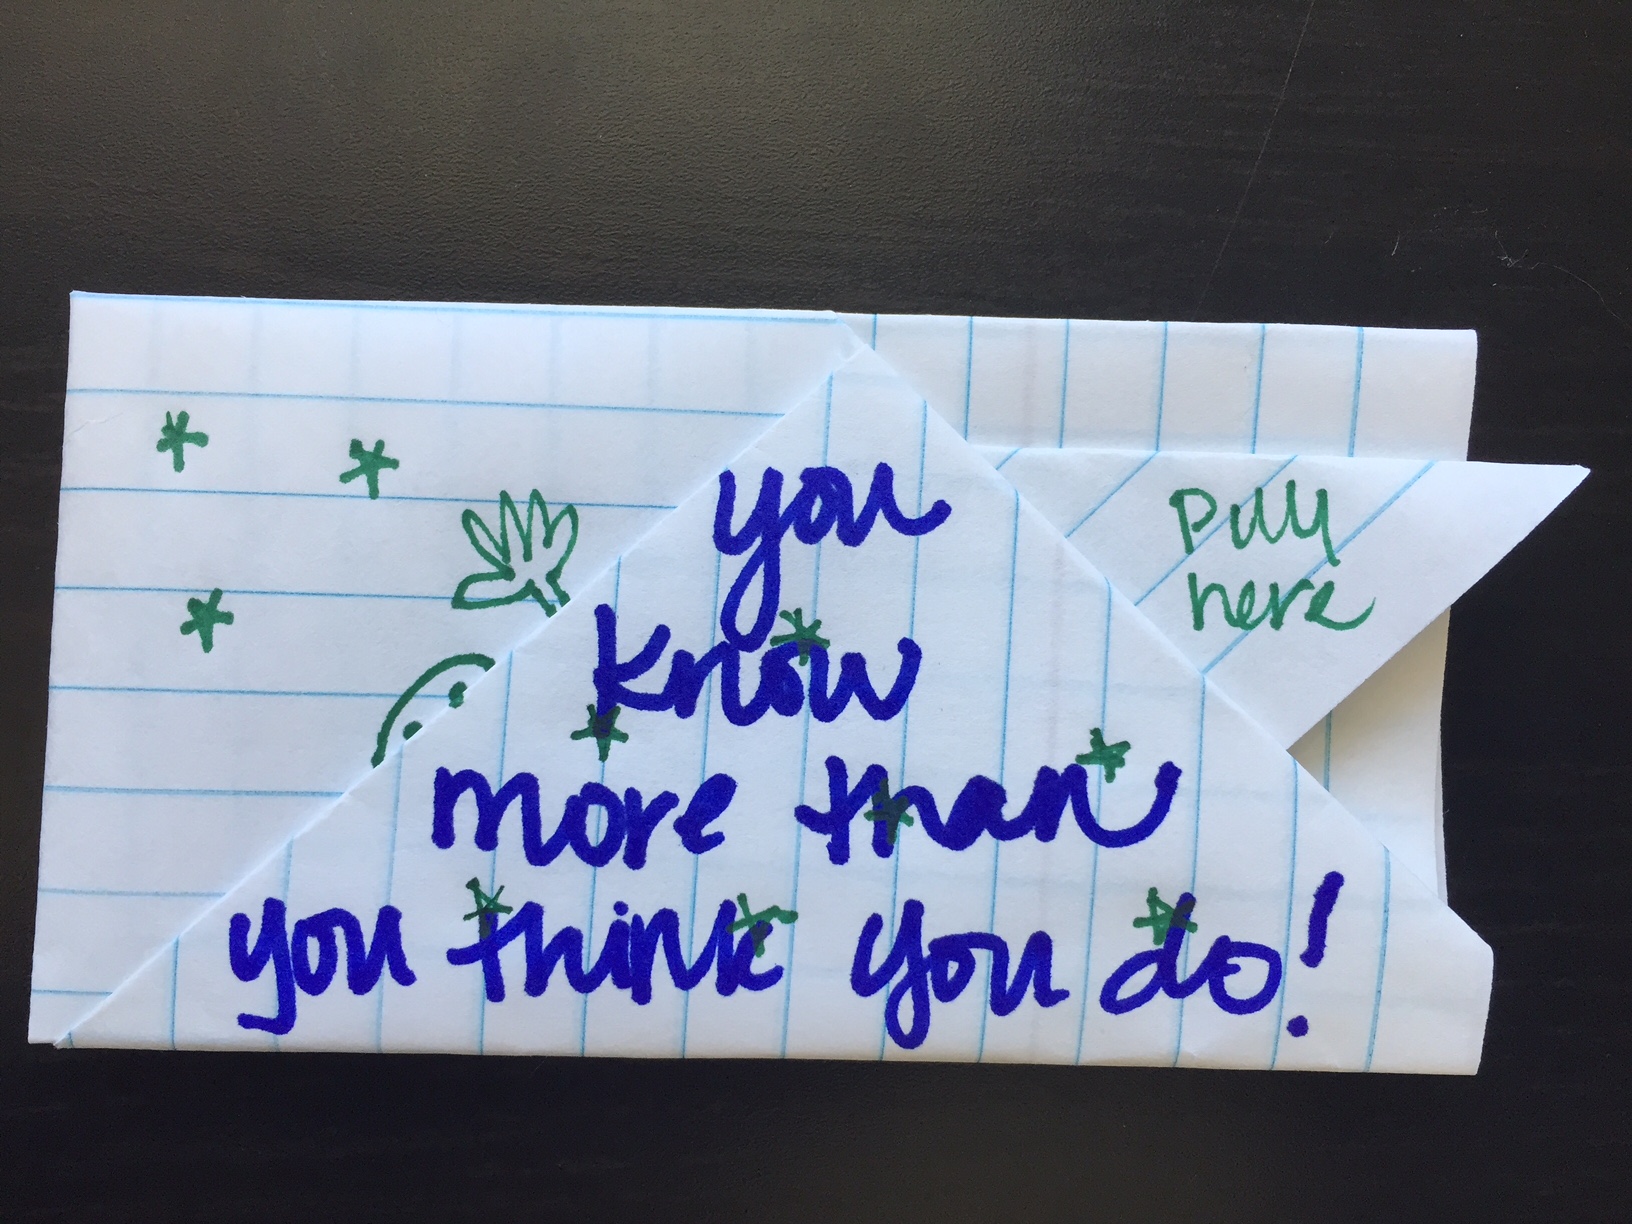 you
know
more than
you think you do!
pull
here